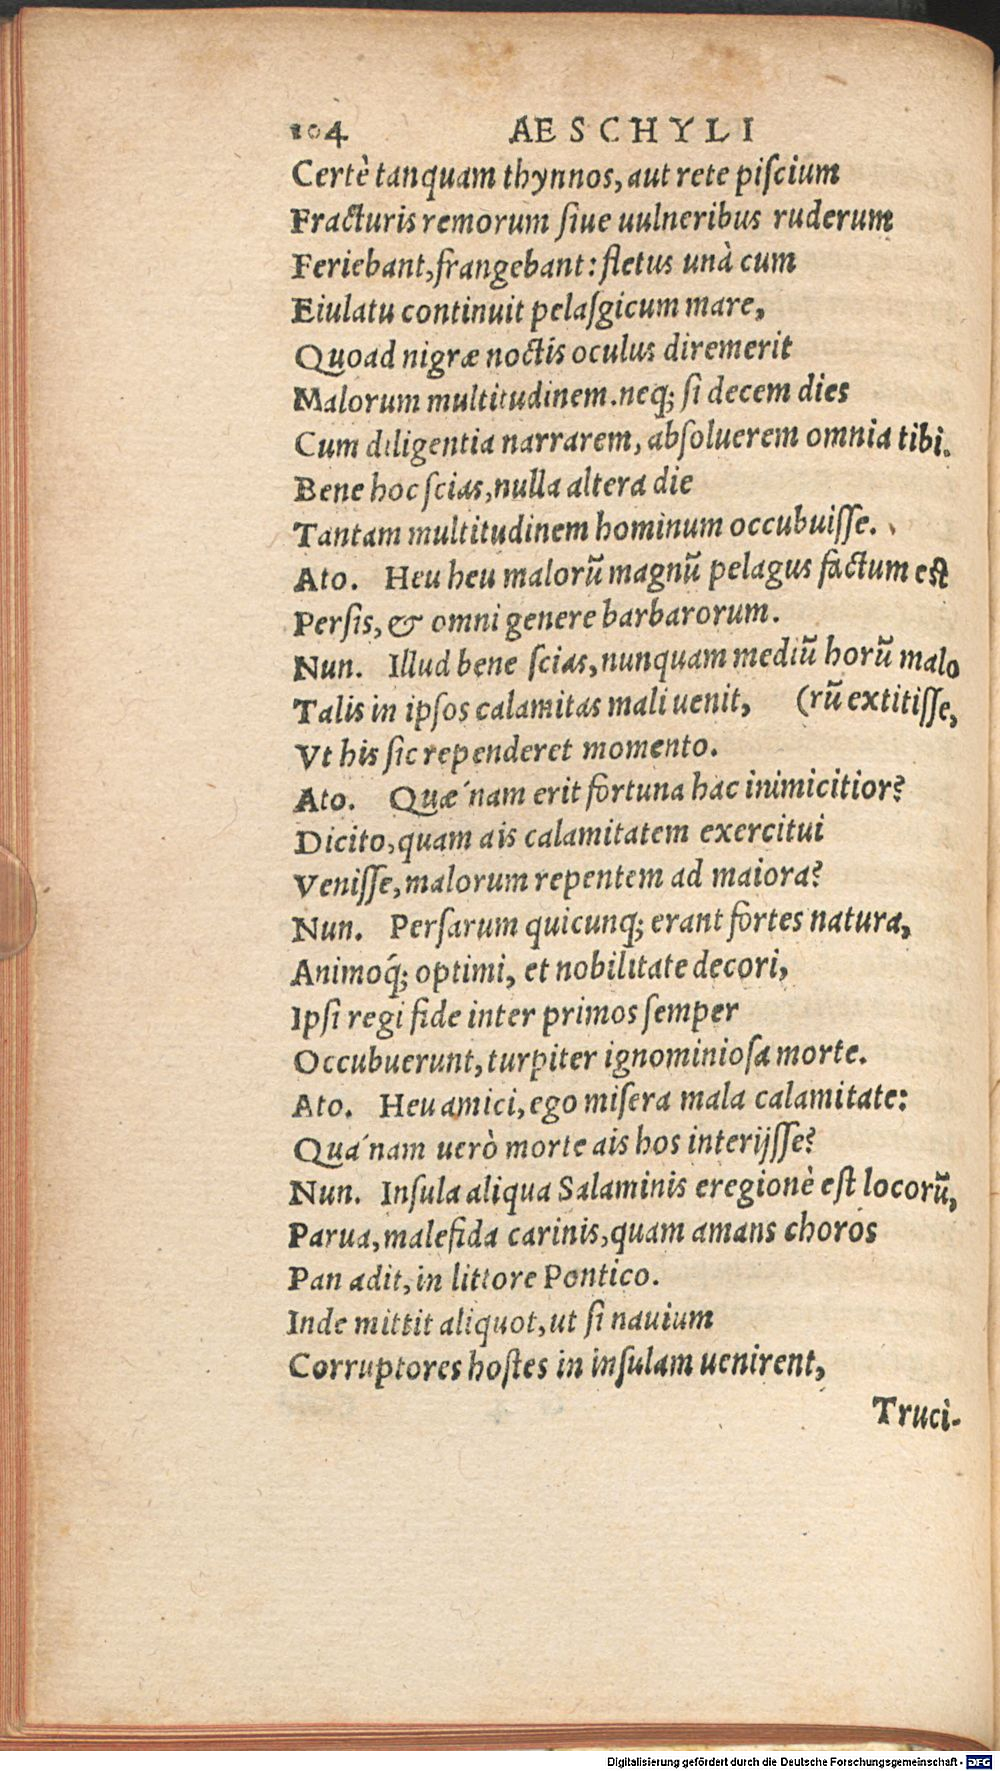 104 AESCHYLI
Certè tanquam thynnos, aut rete piſcium
Fracturis remorum ſiue uulneribus ruderum
Feriebant, frangebant: fletus unà cum
Eiulatu continuit pelaſgicum mare,
Quoad nigræ noctis oculus diremerit
Malorum multitudinem. neq; ſi decem dies
Cum diligentia narrarem, abſoluerem omnia tibi.
Bene hoc ſcias, nulla altera die
Tantam multitudinem hominum occubuiſſe.
Ato. Heu heu malorũ magnũ pelagus factum eſt
Perſis, & omni genere barbarorum.
Nun. Illud bene ſcias, nunquam mediũ horũ malo
Talis in ipſos calamitas mali uenit, (rũ extitiſſe,
Vt his ſic rependeret momento.
Ato. Quæ´nam erit fortuna hac inimicitior?
Dicito, quam ais calamitatem exercitui
Veniſſe, malorum repentem ad maiora?
Nun. Perſarum quicunq; erant fortes natura,
Animoq́; optimi, et nobilitate decori,
Ipſi regi fide inter primos ſemper
Occubuerunt, turpiter ignominioſa morte.
Ato. Heu amici, ego miſera mala calamitate:
Qua´nam uerò morte ais hos interijſſe?
Nun. Inſula aliqua Salaminis eregionè eſt locorũ,
Parua, malefida carinis, quam amans choros
Pan adit, in littore Pontico.
Inde mittit aliquot, ut ſi nauium
Corruptores hoſtes in inſulam uenirent,
Truci-
Digitalisierung gefördert durch die Deutsche Forschungsgemeinschaft - DFG